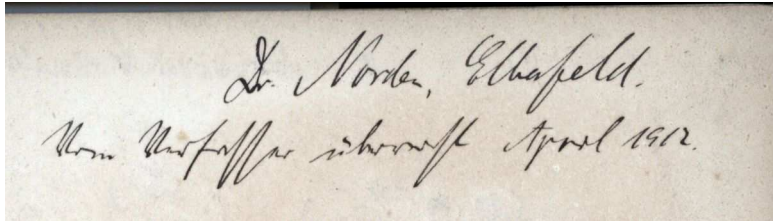 Dr. Norden, Elberfeld.
Vom Verfasser überreicht April 1912.